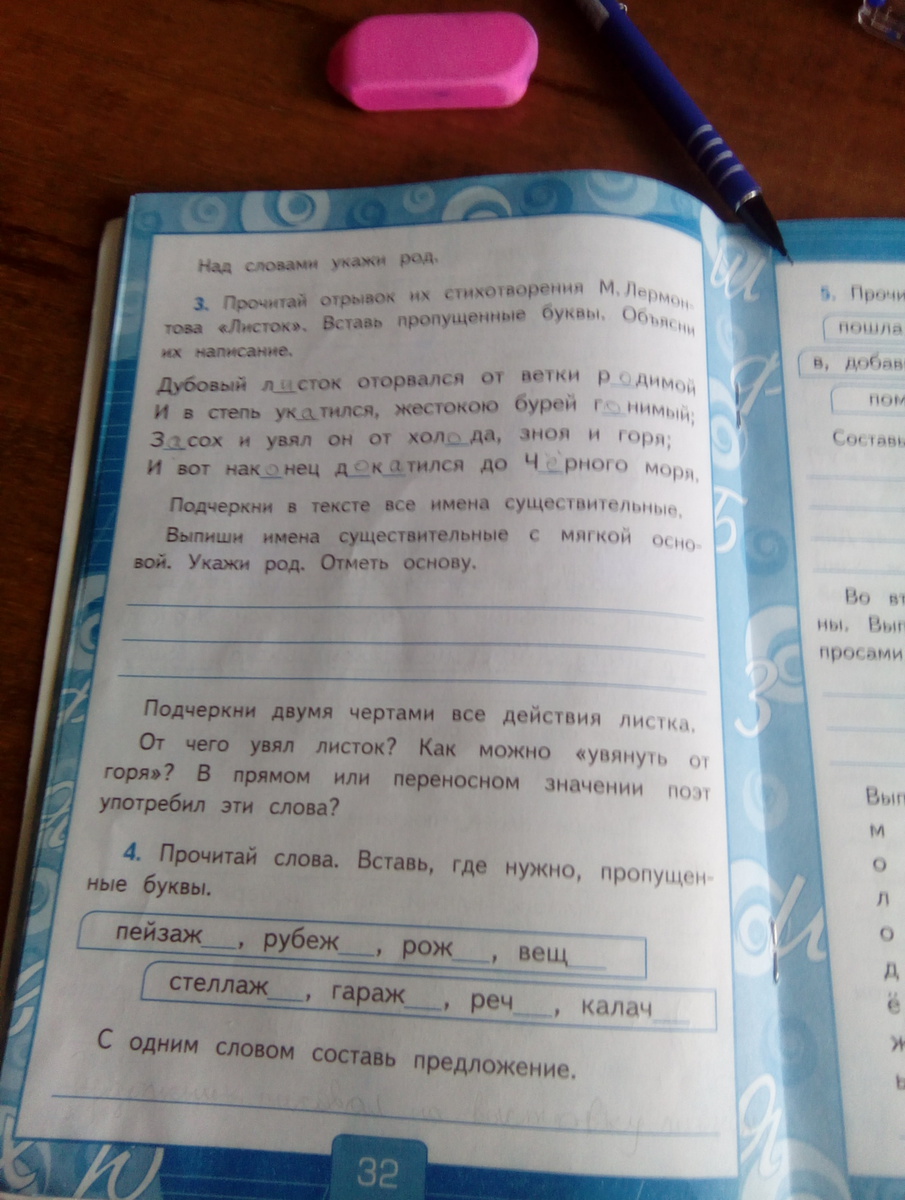 Над словами укажи род.
3. Прочитай отрывок их стихотворения М. Лермон-
това «Листок». Вставь пропущенные буквы. Объясни
их написание.
Дубовый листок оторвался от ветки родимой
И в степь укатился, жестокою бурей гонимый;
Засох и увял он от холода, зноя и горя;
И вот наконец докатился до Чёрного моря.
Подчеркни в тексте все имена существительные.
Выпиши имена существительные с мягкой осно-
вой. Укажи род. Отметь основу.
Подчеркни двумя чертами все действия листка.
От чего увял листок? Как можно «увянуть от
горя»? В прямом или переносном значении поэт
употребил эти слова?
4. Прочитай слова. Вставь, где нужно, пропущен-
ные буквы.
пейзаж__, рубеж__, рож__, вещ__
стеллаж__, гараж__, реч__, калач__
С одним словом составь предложение.
32
5. Прочи
пошла
в, добав
пом
Составь
Во вт
ны. Вып
просами
Вып
м
о
л
о
д
ё
ж
ь